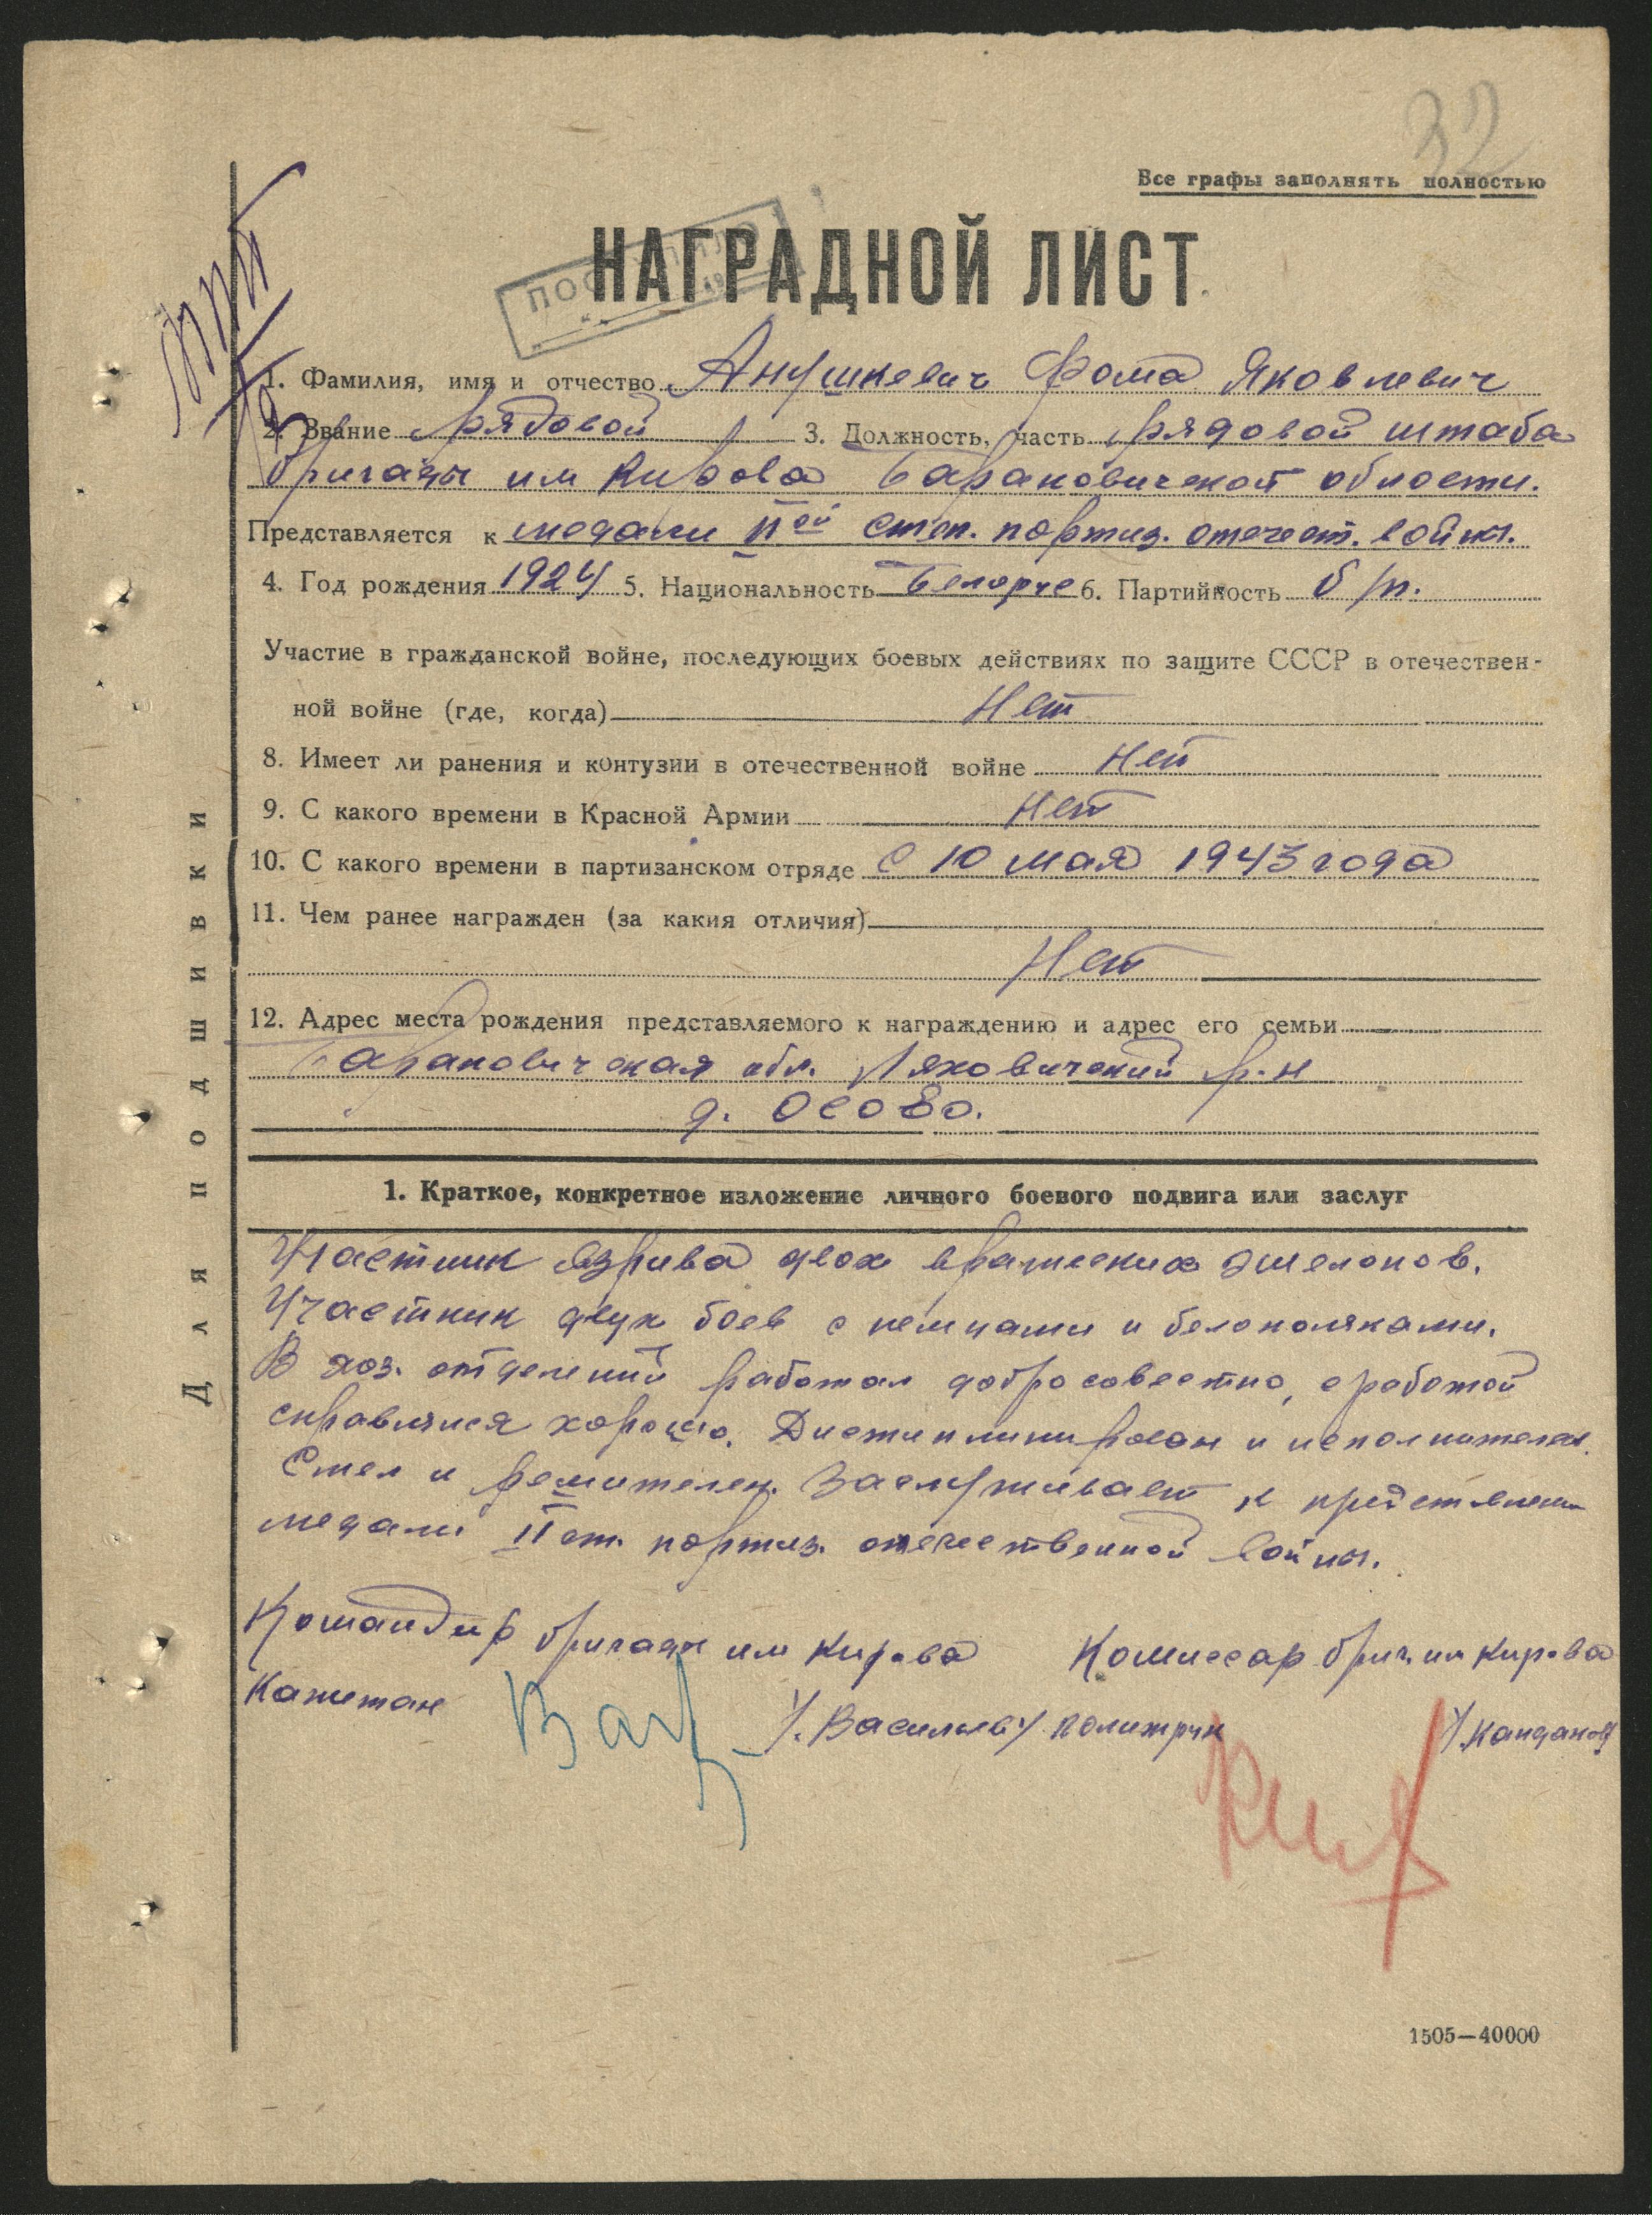 32
Все графы заполнять полностью
НАГРАДНОЙ ЛИСТ
1. Фамилия, имя и отчество Анушкевич Фома Яковлевич
2. Звание рядовой 3. Должность, часть рядовой штаба
бригады им Кирова Барановичской области.
Представляется к медали IIой степ. партиз. отечест. войны.
4. Год рождения 1924 5. Национальность Белорус 6. Партийность б/п.
Участие в гражданской войне, последующих боевых действиях по защите СССР в отечествен-
ной войне (где, когда) Нет
8. Имеет ли ранения и контузии в отечественной войне Нет
9. С какого времени в Красной Армии Нет
10. С какого времени в партизанском отряде С 10 мая 1943 года
11. Чем ранее награжден (за какия отличия)
Нет
12. Адрес места рождения представляемого к награждению и адрес его семьи
Барановичская обл. Ляховичский р-н
д. Осово.
Для подшивки
1. Краткое, конкретное изложение личного боевого подвига или заслуг
Участник взрыва двох вражеских эшелонов.
Участник двух боев с немцами и белополяками.
В хоз. отделении работал добросовестно, с работой
справлялся хорошо. Дистиплинирован и исполнителен.
Смел и решителен. Заслуживает к представлению
медали II ст. партиз. отечественной войны.
Командир бригады им Кирова Комиссар бриг. им Кирова
Капитан /Васильев/ политрук /Канданов/
1505—40000